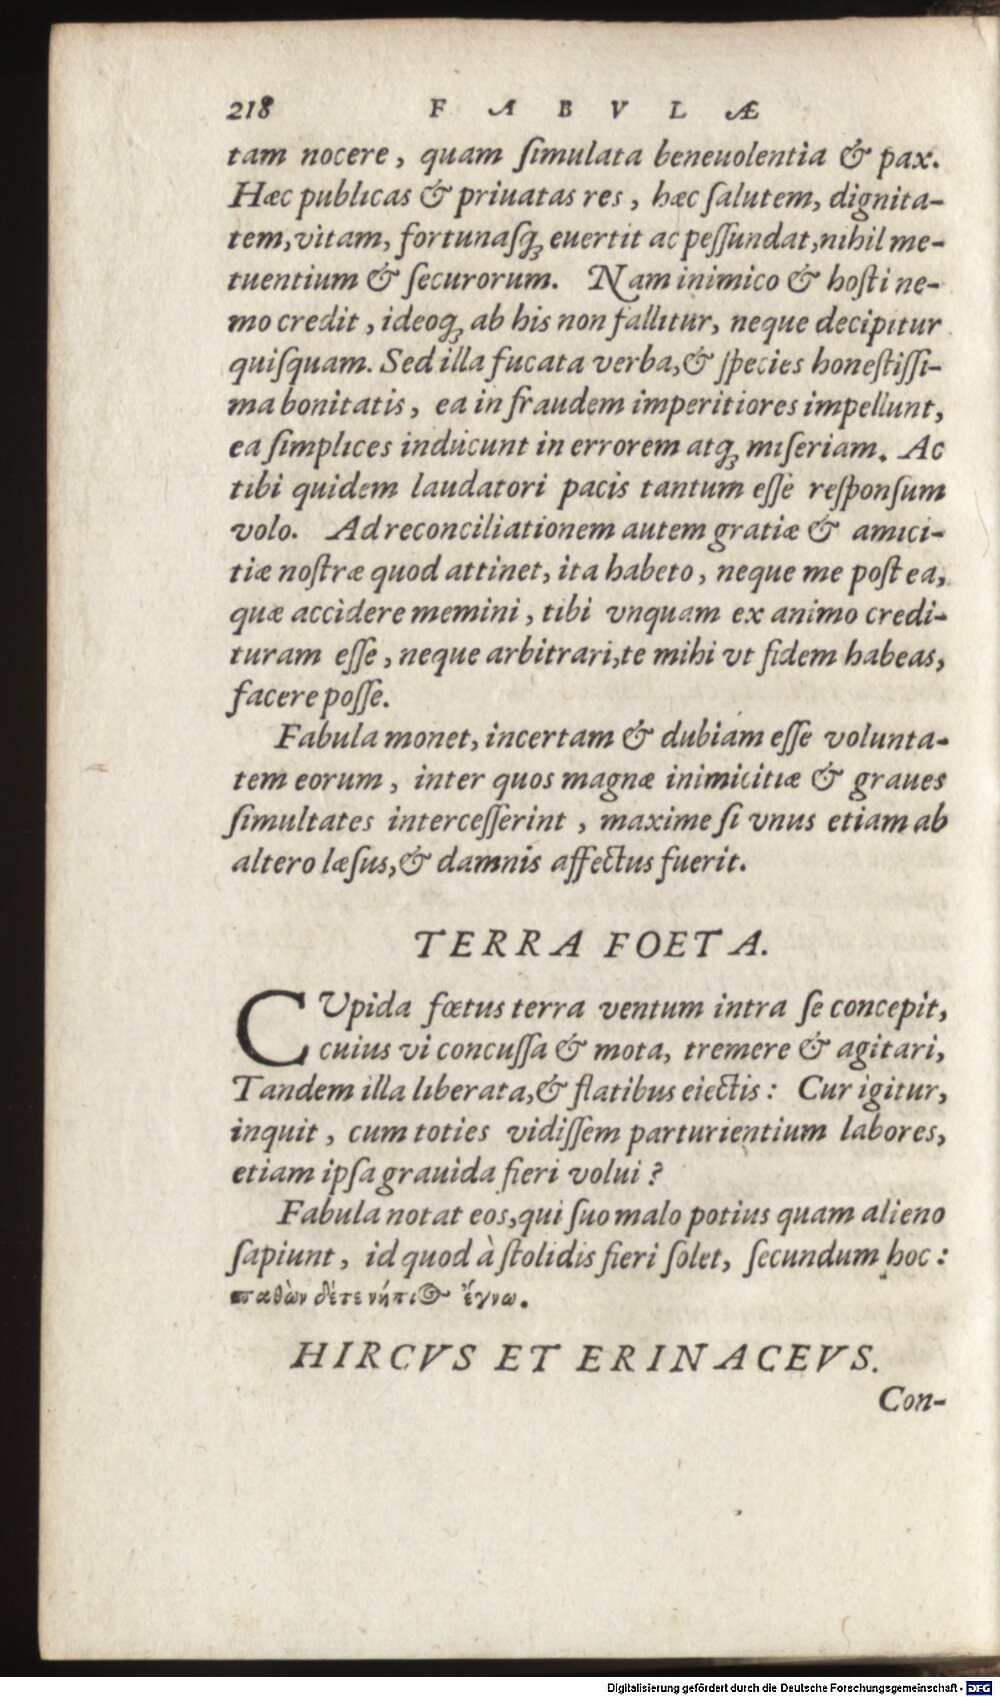 218 FABVLÆ
tam nocere, quam ſimulata beneuolentia & pax.
Hæc publicas & priuatas res, hæc ſalutem, dignita-
tem, vitam, fortunaſq; euertit ac peſſundat, nihil me-
tuentium & ſecurorum. Nam inimico & hoſti ne-
mo credit, ideoq; ab his non fallitur, neque decipitur
quiſquam. Sed illa fucata verba, & ſpecies honeſtiſſi-
ma bonitatis, ea in fraudem imperitiores impellunt,
ea ſimplices inducunt in errorem atq; miſeriam. Ac
tibi quidem laudatori pacis tantum eſſe reſponſum
volo. Ad reconciliationem autem gratiæ & amici-
tiæ noſtræ quod attinet, ita habeto, neque me poſt ea,
quæ accidere memini, tibi vnquam ex animo credi-
turam eſſe, neque arbitrari, te mihi vt fidem habeas,
facere poſſe.
Fabula monet, incertam & dubiam eſſe volunta-
tem eorum, inter quos magnæ inimicitiæ & graues
ſimultates interceſſerint, maxime ſi vnus etiam ab
altero læſus, & damnis affectus fuerit.
TERRA FOETA.
CVpida fœtus terra ventum intra ſe concepit,
cuius vi concuſſa & mota, tremere & agitari,
Tandem illa liberata, & flatibus eiectis: Cur igitur,
inquit, cum toties vidiſſem parturientium labores,
etiam ipſa grauida fieri volui?
Fabula notat eos, qui ſuo malo potius quam alieno
ſapiunt, id quod à ſtolidis fieri ſolet, ſecundum hoc:
παθὼν δέτε νήπιος ἔγνω.
HIRCVS ET ERINACEVS.
Con-
Digitalisierung gefördert durch die Deutsche Forschungsgemeinschaft - DFG